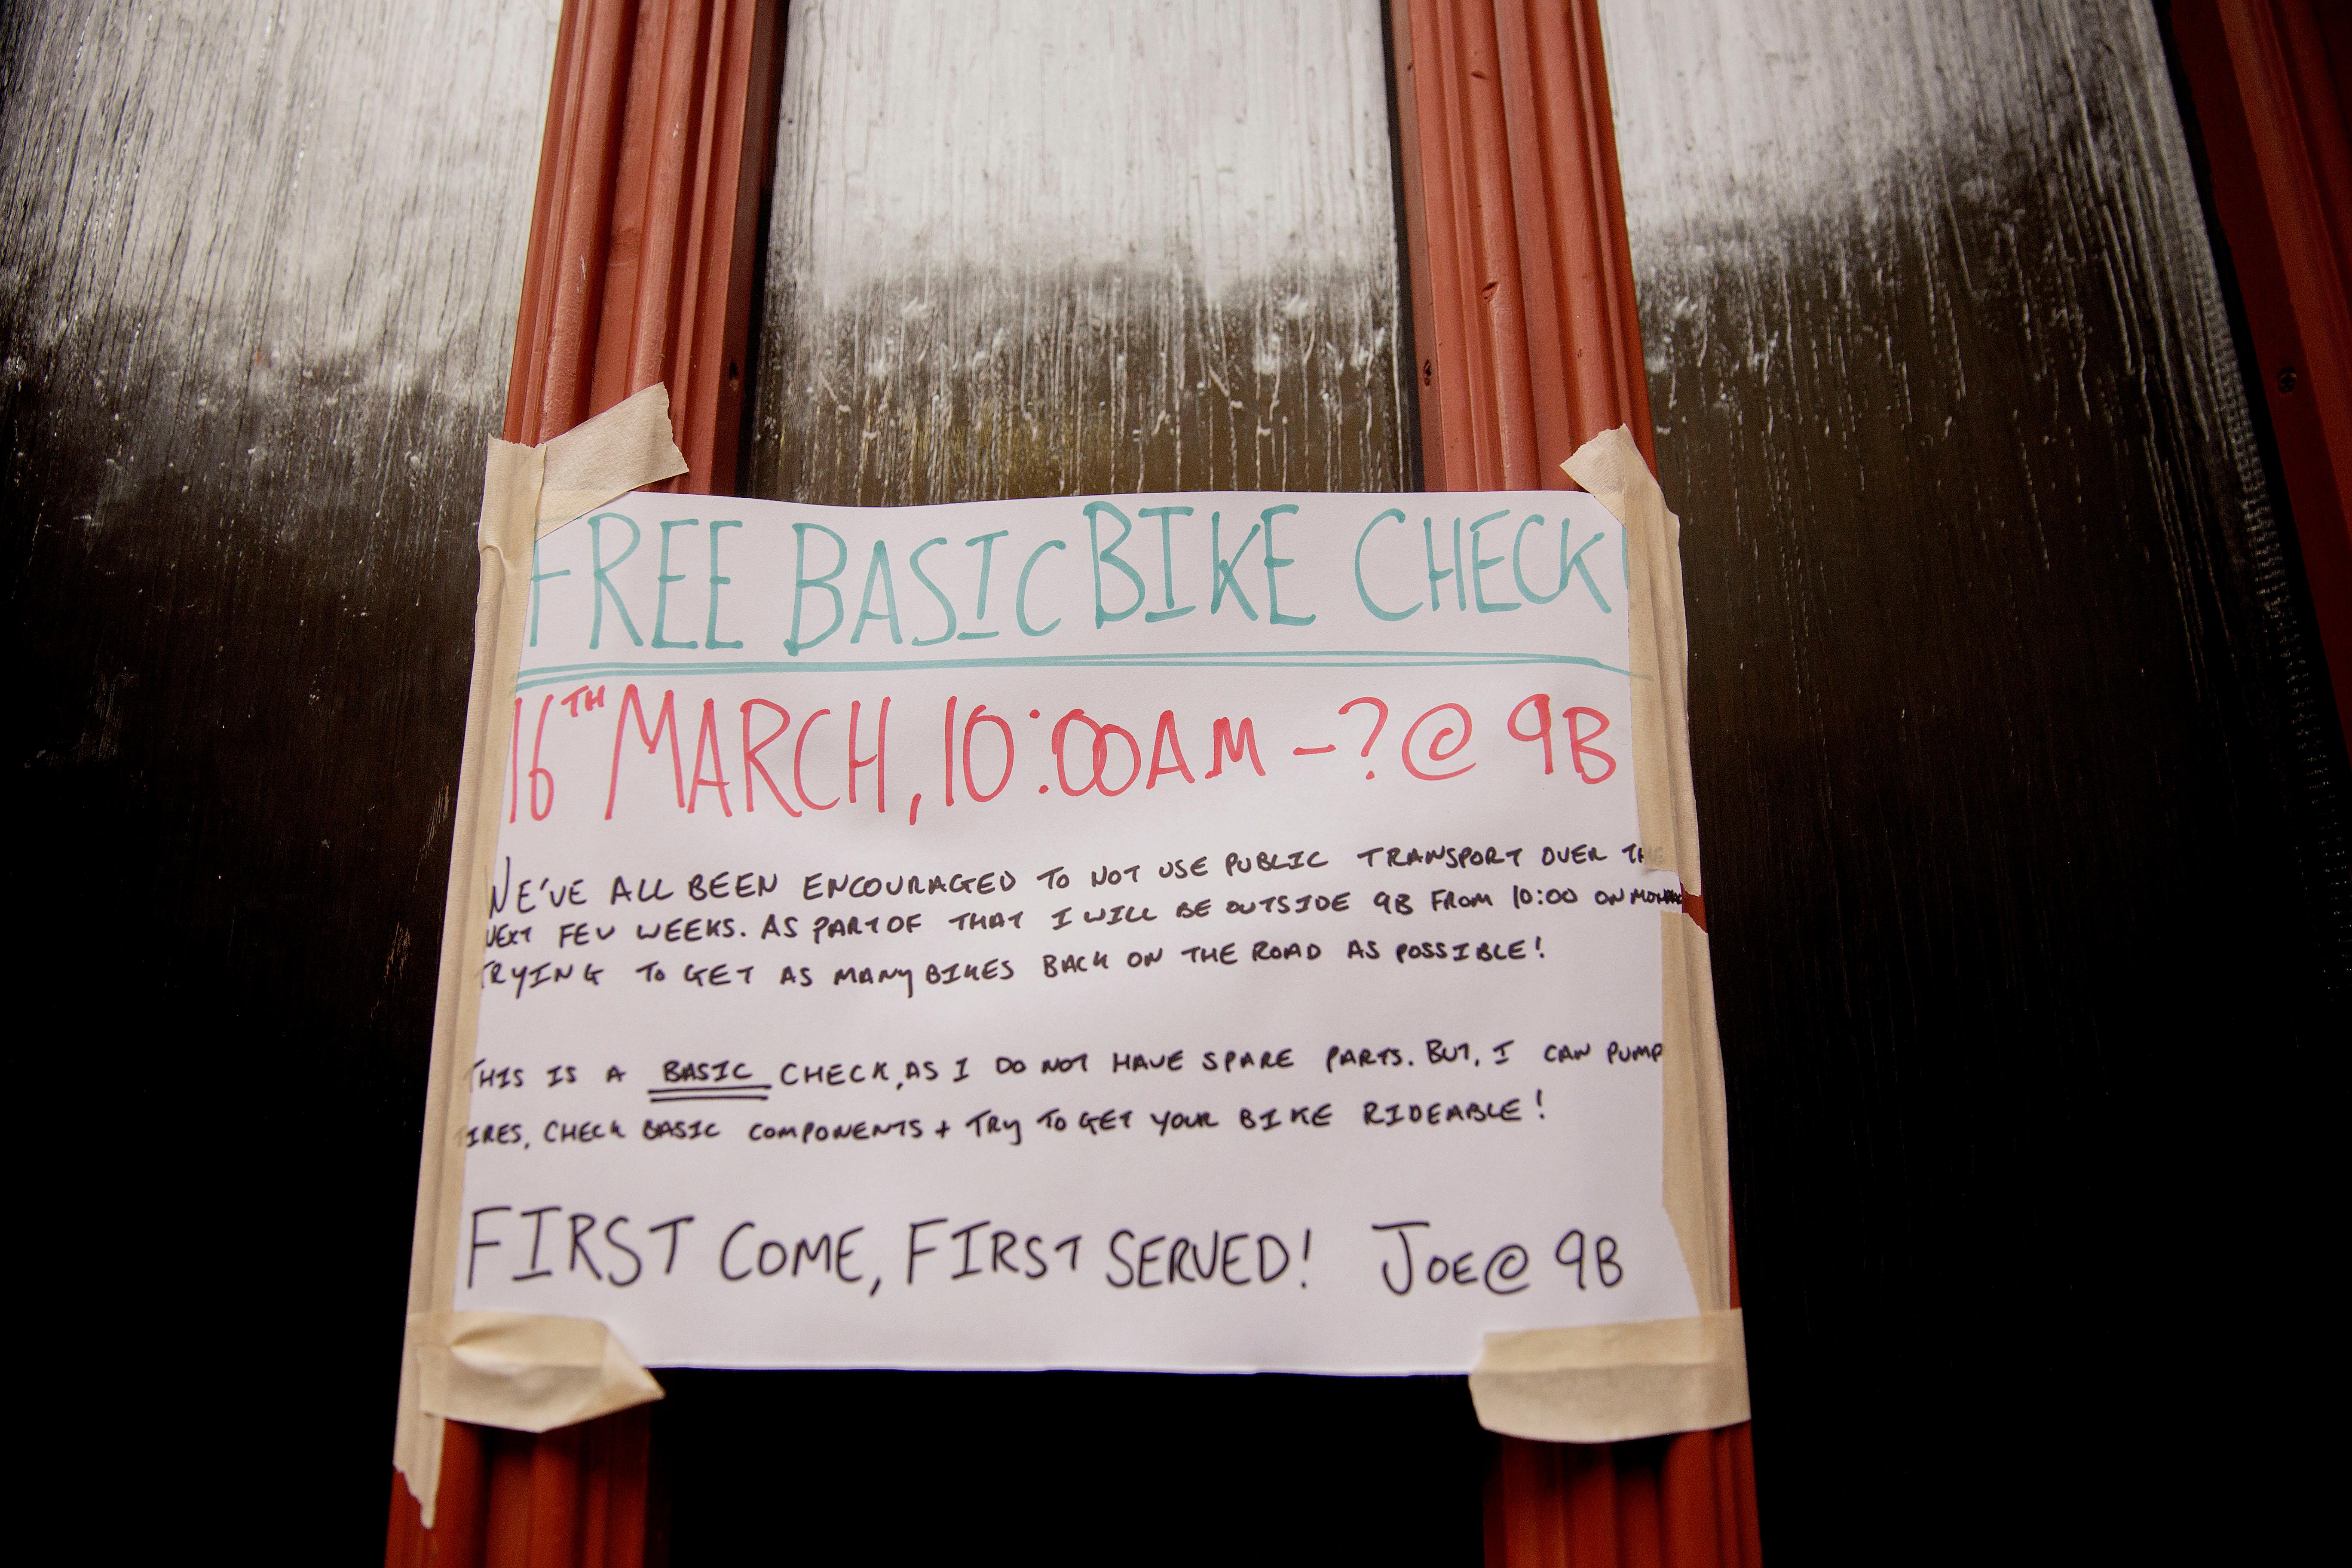 FREE BASIC BIKE CHECK
16TH MARCH, 10:00AM - ? @ 9B
WE'VE ALL BEEN ENCOURAGED TO NOT USE PUBLIC TRANSPORT OVER THE
NEXT FEW WEEKS. AS PART OF THAT I WILL BE OUTSIDE 9B FROM 10:00 ON MONDAY
TRYING TO GET AS MANY BIKES BACK ON THE ROAD AS POSSIBLE!
THIS IS A BASIC CHECK, AS I DO NOT HAVE SPARE PARTS. BUT, I CAN PUMP
TIRES, CHECK BASIC COMPONENTS + TRY TO GET YOUR BIKE RIDEABLE!
FIRST COME, FIRST SERVED! JOE @ 9B